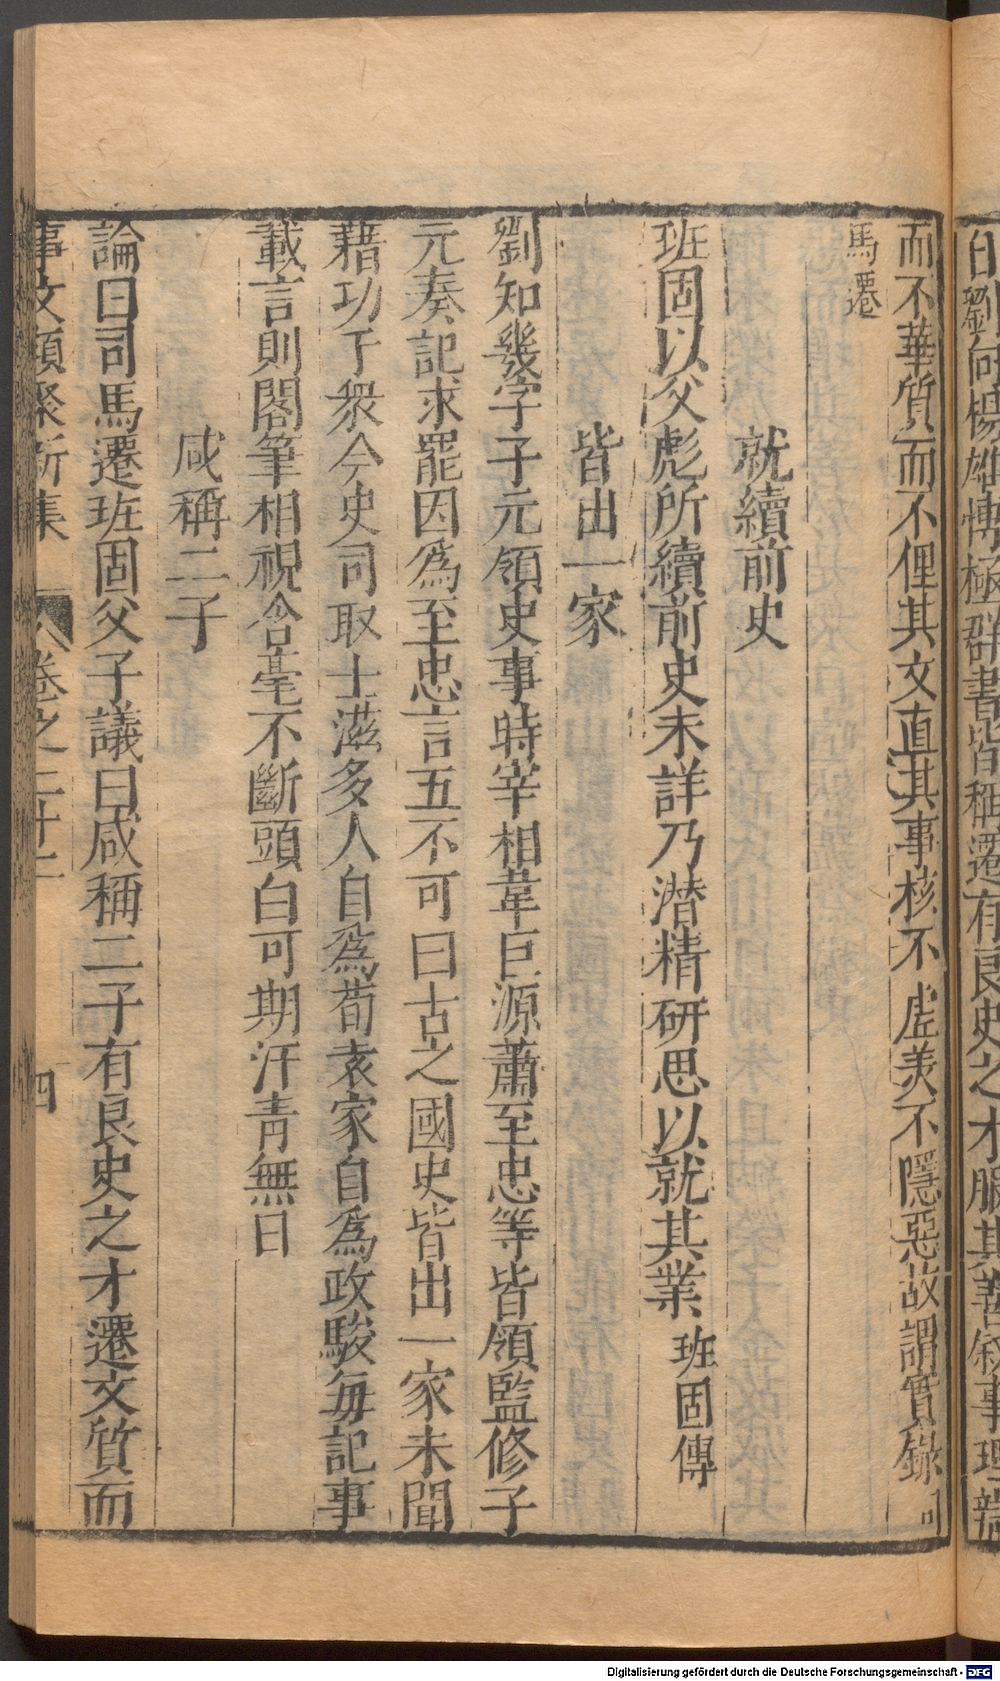 白劉向楊雄愽極群書皆稱遷有良史之才服其善叙事理
而不華質而不俚其文直其事核不虛羙不隱惡故謂實錄司
馬遷
就續前史
班固以父彪所續前史未詳乃潜精研思以就其業班固傳
皆出一家
劉知幾字子元領史事時宰相韋巨源蕭至忠等皆領監修子
元奏記求罷因爲至忠言五不可曰古之國史皆出一家未聞
藉功于衆今史司取士滋多人自爲荀袁家自爲政駿每記事
載言則閣筆相視含毫不斷頭白可期汗青無日
咸稱二子
論曰司馬遷班固父子議曰咸稱二子有良史之才遷文質而
事文類聚新集 卷之二十二 四
Digitalisierung gefördert durch die Deutsche Forschungsgemeinschaft - DFG